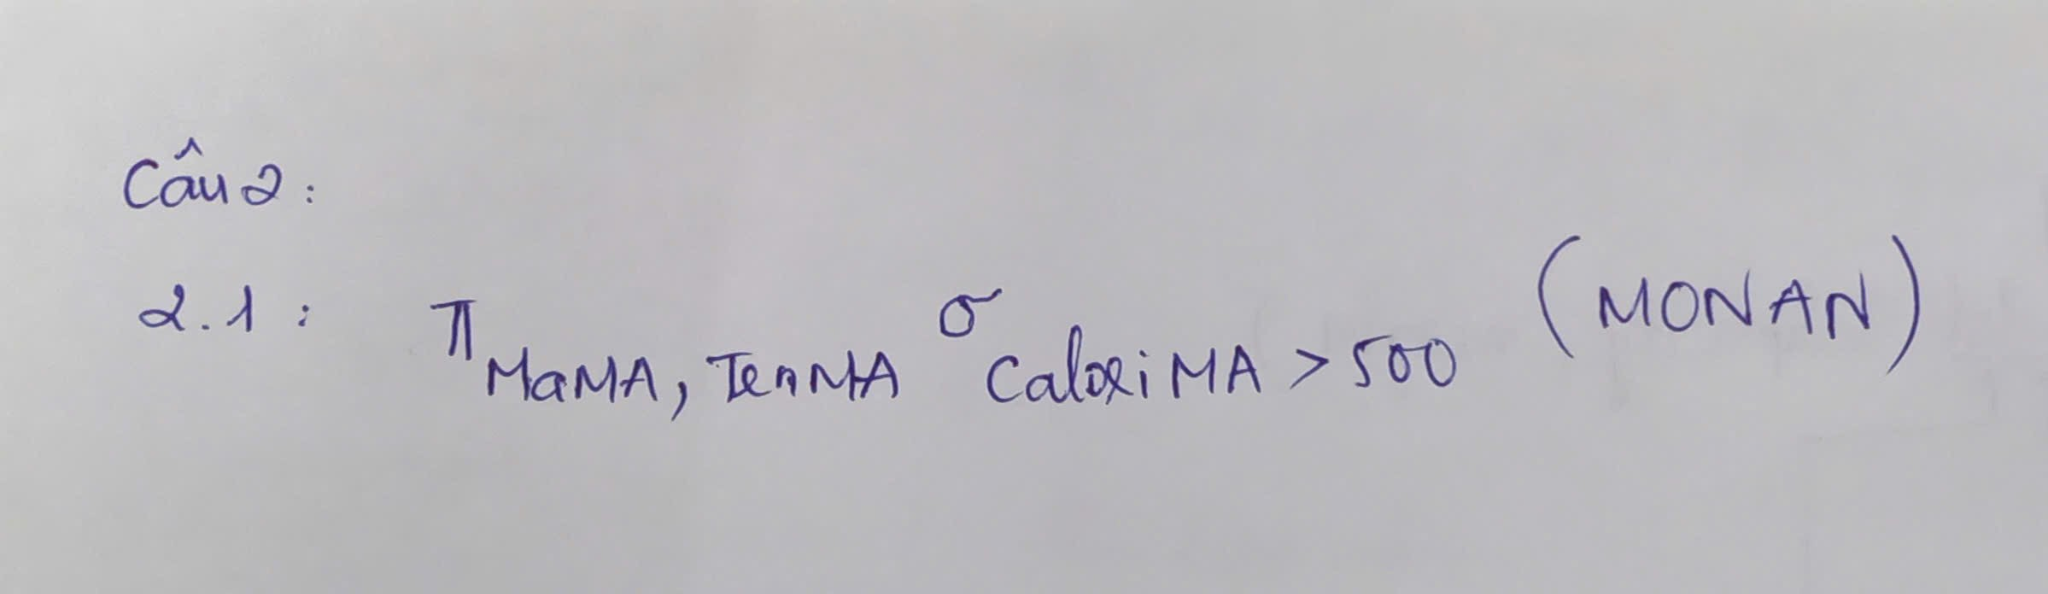 Câu 2:
2.1: π MaMA, TenMA σ CaloriMA > 500 (MONAN)